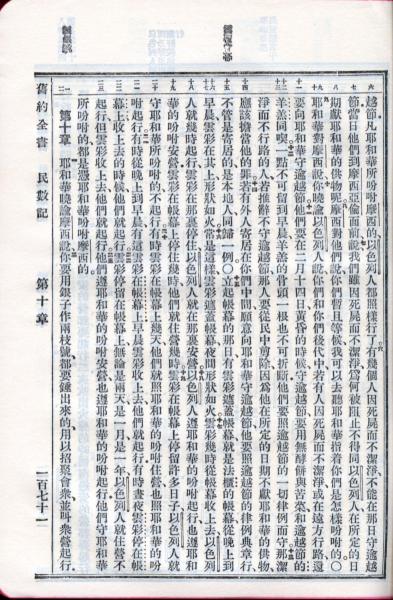 越節凡耶和華所吩咐摩西的以色列人都照樣行了有幾個人因死屍而不潔淨不能在那日守逾越
節當日他們到摩西亞倫面前說我們雖因死屍而不潔淨爲何被阻止不得同以色列人在所定的日
期獻耶和華的供物呢摩西對他們說你們暫且等候我可以去聽耶和華指着你們是怎樣吩咐的○
耶和華對摩西說你曉諭以色列人說你們和你們後代中若有人因死屍而不潔淨或在遠方行路還
要向耶和華守逾越節他們要在二月十四日黃昏的時候守逾越節要用無酵餅與苦菜和逾越節的
羊羔同喫一點不可留到早晨羊羔的骨頭一根也不可折斷他們要照逾越節的一切律例而守那潔
淨而不行路的人若推辭不守逾越節那人要從民中剪除因爲他在所定的日期不獻耶和華的供物
應該擔當他的罪若有外人寄居在你們中間願意向耶和華守逾越節他要照逾越節的律例典章行
不管是寄居的是本地人同歸一例○立起帳幕的那日有雲彩遮蓋帳幕就是法櫃的帳幕從晚上到
早晨雲彩在其上形狀如火常是這樣雲彩遮蓋帳幕夜間形狀如火雲彩幾時從帳幕收上去以色列
人就幾時起行雲彩在那裏停住以色列人就在那裏安營以色列人遵耶和華的吩咐起行也遵耶和
華的吩咐安營雲彩在帳幕上停住幾時他們就住營幾時雲彩在帳幕上停留許多日子以色列人就
守耶和華所吩咐的不起行有時雲彩在帳幕上幾天他們就照耶和華的吩咐住營也照耶和華的吩
咐起行有時從晚上到早晨有這雲彩在帳幕上早晨雲彩收上去他們就起行有時晝夜雲彩停在帳
幕上收上去的時候他們就起行雲彩停留在帳幕上無論是兩天是一月是一年以色列人就住營不
起行但雲彩收上去他們就起行他們遵耶和華的吩咐安營也遵耶和華的吩咐起行他們守耶和華
所吩咐的都是憑耶和華吩咐摩西的
第十章 耶和華曉諭摩西說你要用銀子作兩枝號都要錘出來的用以招聚會衆並叫衆營起行
舊約全書 民數記 第十章 一百七十一